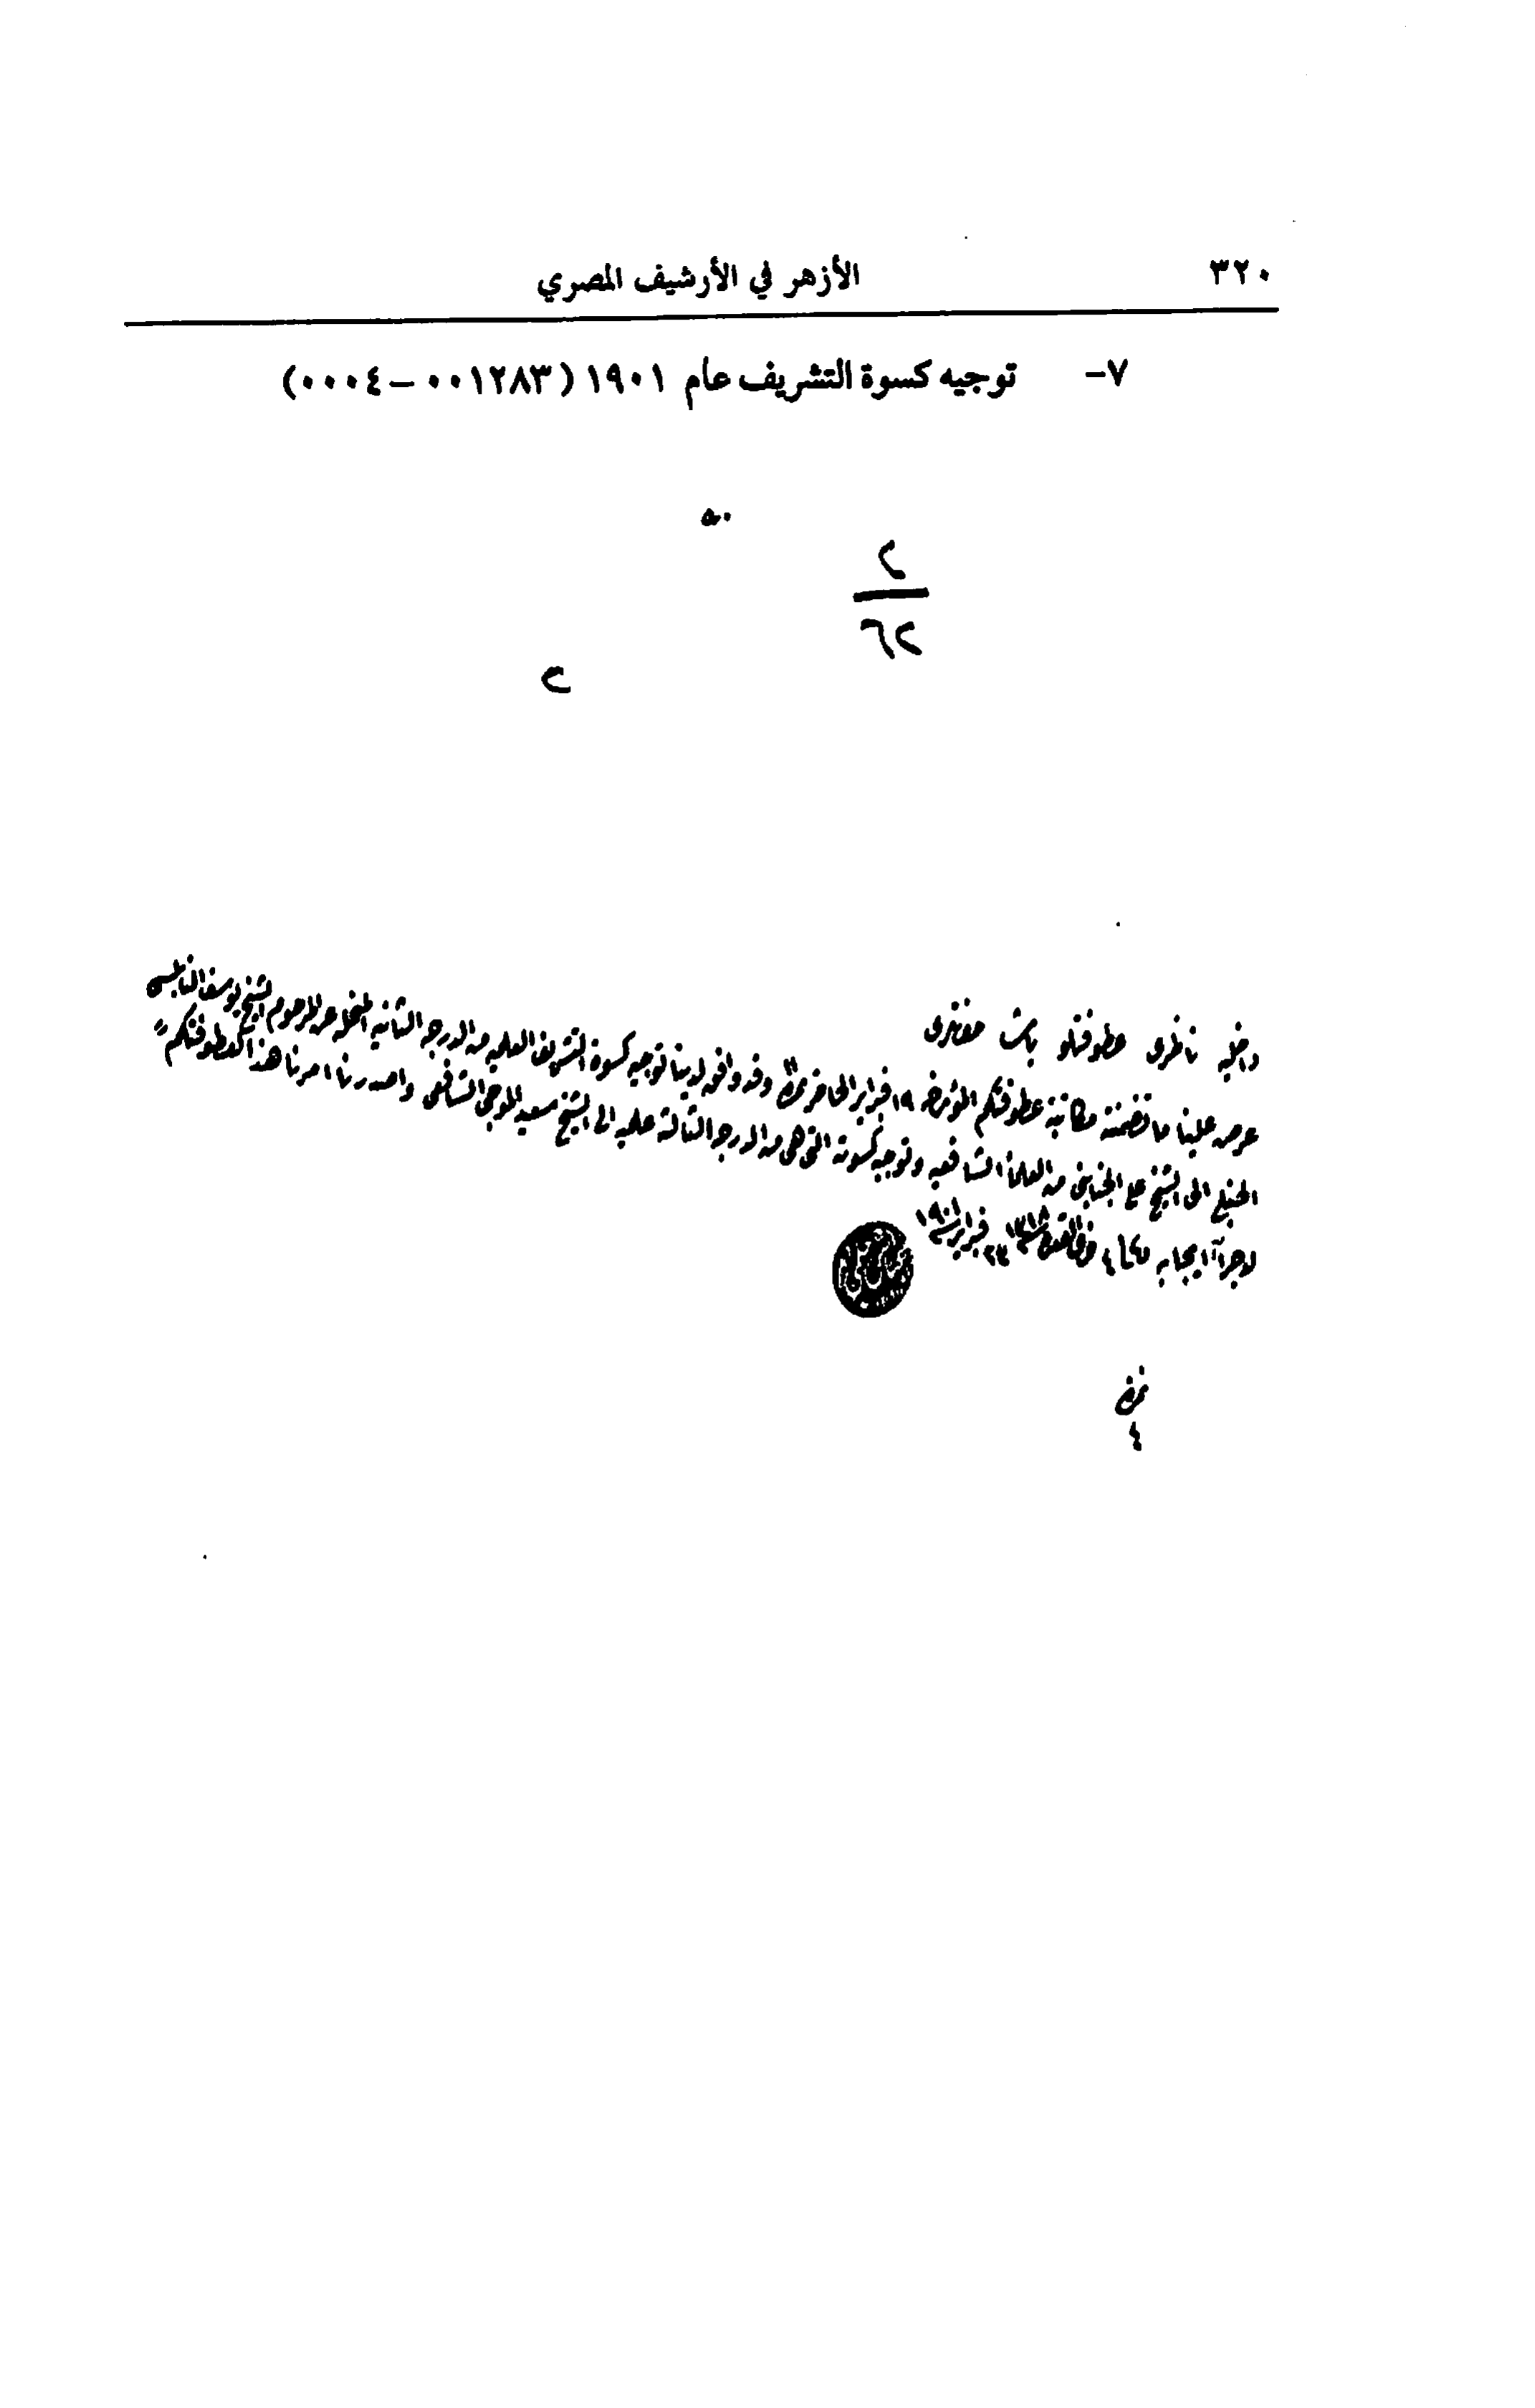 ٣٢٠
الأزهر في الأرشيف المصري
٧- توجيه كسوة التشريف عام ١٩٠١ (٠٠١٢٨٣-٠٠٠٤)
٥٠
٢
٢٦
٢
داخليه ناظرى عطوفتلو باشا حضرتلرى
عرض علينا ما تضمنته مكاتبة عطوفتكم المؤرخه ١٩ فبراير الحاضر وقد وافق لدينا توجيه كسوة التشريف العلميه من الدرجه الثانيه المنحله عن المرحوم الشيخ يوسف النابلسى
الحنبلى الى الشيخ على الجناينى من العلماء الشافعيه وتوجيه كسوته التى هى من الدرجه الثالثة علميه الى الشيخ سعيد الموجى الشافعى واصدرنا امرنا هذا لعطوفتكم
لاجراء ايجابه ٤ ذى القعدة سنة ١٣١٨ ٢٣ فبراير سنة ١٩٠١
٤